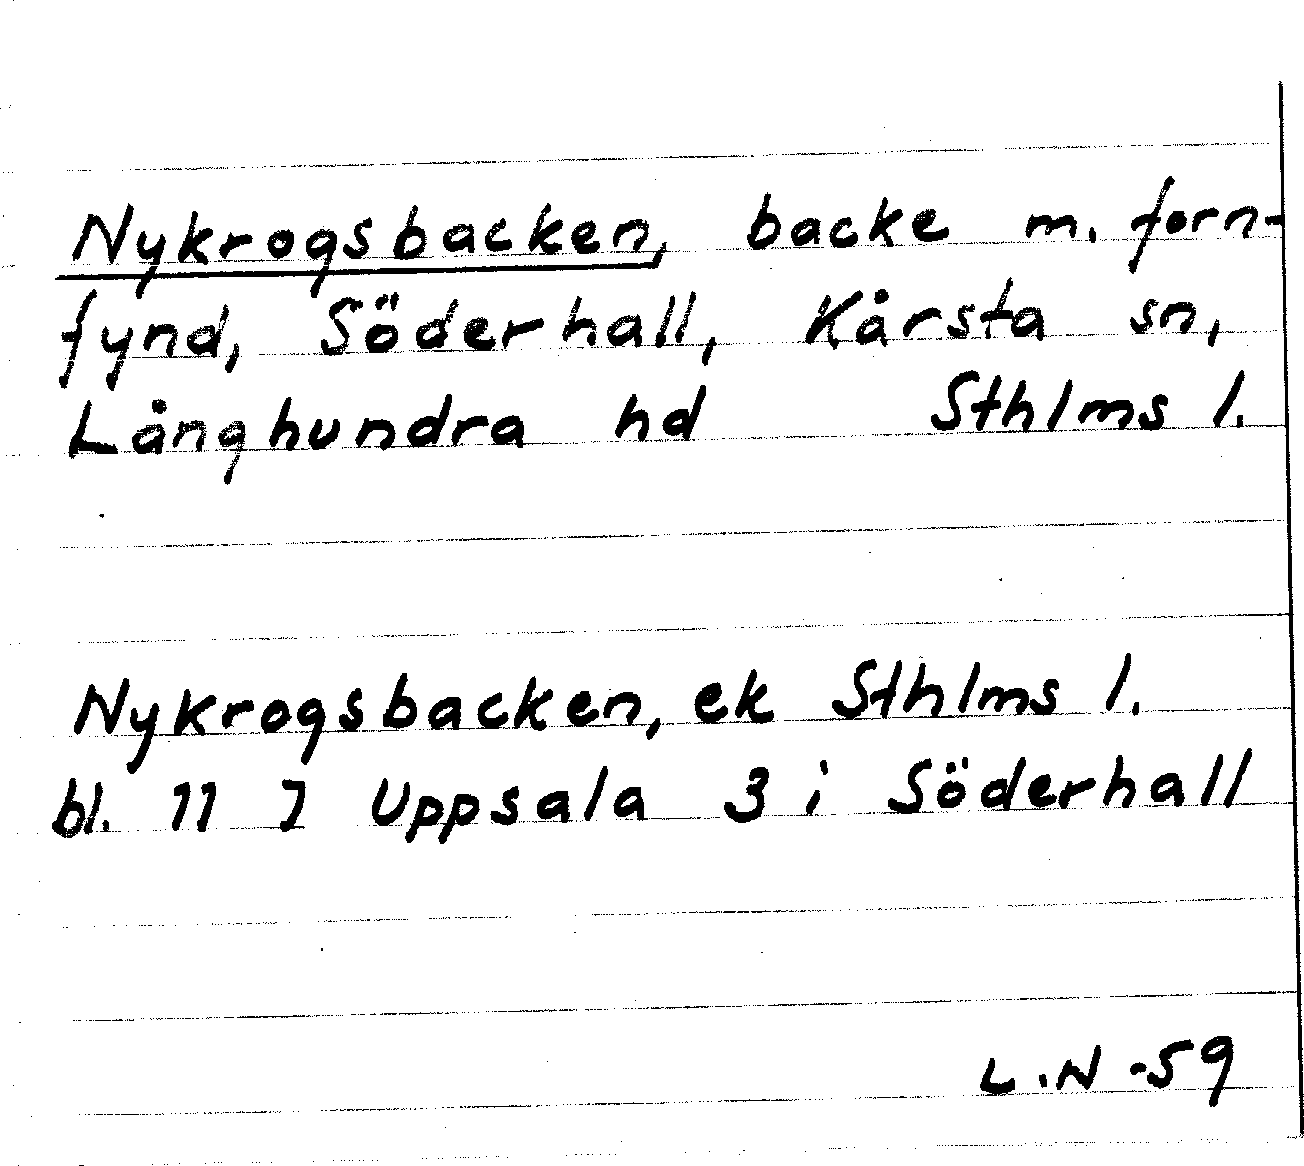 Nykrogsbacken, backe m. forn-
fynd, Söderhall, Kårsta sn,
Långhundra hd Sthlms l.
Nykrogsbacken, ek Sthlms l.
bl. 11 I Uppsala 3 i Söderhall
L.N -59